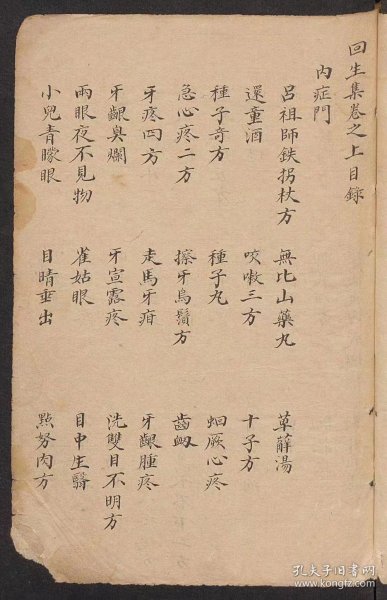 回生集卷之上目錄
內症門
呂祖師鉄拐杖方 無比山藥丸 萆薢湯
還童酒 咳嗽三方 十子方
種子奇方 種子丸 蛔厥心疼
急心疼二方 擦牙烏鬚方 齒衄
牙疼四方 走馬牙疳 牙齦腫疼
牙齦臭爛 牙宣露疼 洗雙目不明方
兩眼夜不見物 雀姑眼 目中生翳
小兒青矇眼 目睛垂出 點努肉方
孔夫子旧书网
www.kongfz.com